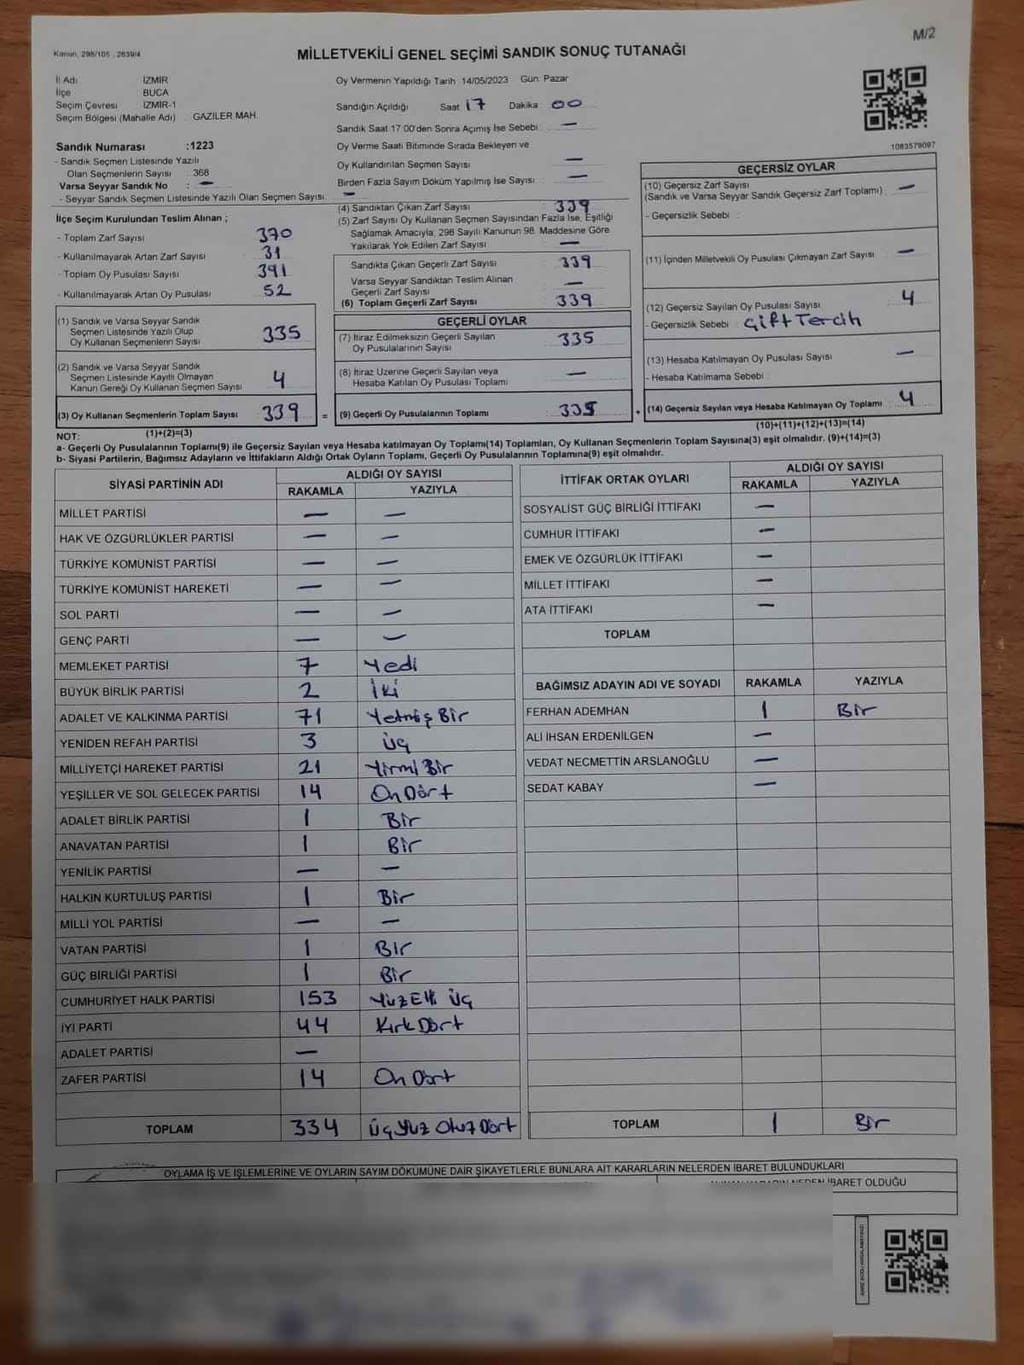 M/2
Kanun, 298/105 , 2839/4
MİLLETVEKİLİ GENEL SEÇİMİ SANDIK SONUÇ TUTANAĞI
İl Adı İZMİR
İlçe BUCA
Seçim Çevresi İZMİR-1
Seçim Bölgesi (Mahalle Adı) GAZİLER MAH.
Sandık Numarası :1223
- Sandık Seçmen Listesinde Yazılı
Olan Seçmenlerin Sayısı 368
Varsa Seyyar Sandık No : —
- Seyyar Sandık Seçmen Listesinde Yazılı Olan Seçmen Sayısı —
İlçe Seçim Kurulundan Teslim Alınan ;
- Toplam Zarf Sayısı 370
- Kullanılmayarak Artan Zarf Sayısı 31
- Toplam Oy Pusulası Sayısı 391
- Kullanılmayarak Artan Oy Pusulası 52
(1) Sandık ve Varsa Seyyar Sandık
Seçmen Listesinde Yazılı Olup
Oy Kullanan Seçmenlerin Sayısı 335
(2) Sandık ve Varsa Seyyar Sandık
Seçmen Listesinde Kayıtlı Olmayan
Kanun Gereği Oy Kullanan Seçmen Sayısı 4
(3) Oy Kullanan Seçmenlerin Toplam Sayısı 339 =
(1)+(2)=(3)
Oy Vermenin Yapıldığı Tarih 14/05/2023 Gün: Pazar
Sandığın Açıldığı Saat 17 Dakika 00
Sandık Saat 17:00'den Sonra Açımış İse Sebebi —
Oy Verme Saati Bitiminde Sırada Bekleyen ve
Oy Kullandırılan Seçmen Sayısı —
Birden Fazla Sayım Döküm Yapılmış İse Sayısı —
(4) Sandıktan Çıkan Zarf Sayısı 339
(5) Zarf Sayısı Oy Kullanan Seçmen Sayısından Fazla İse, Eşitliği
Sağlamak Amacıyla, 298 Sayılı Kanunun 98. Maddesine Göre
Yakılarak Yok Edilen Zarf Sayısı —
Sandıkta Çıkan Geçerli Zarf Sayısı 339
Varsa Seyyar Sandıktan Teslim Alınan
Geçerli Zarf Sayısı —
(6) Toplam Geçerli Zarf Sayısı 339
GEÇERLİ OYLAR
(7) İtiraz Edilmeksizin Geçerli Sayılan
Oy Pusulalarının Sayısı 335
(8) İtiraz Üzerine Geçerli Sayılan veya
Hesaba Katılan Oy Pusulası Toplamı —
(9) Geçerli Oy Pusulalarının Toplamı 335 +
1083579097
GEÇERSİZ OYLAR
(10) Geçersiz Zarf Sayısı
(Sandık ve Varsa Seyyar Sandık Geçersiz Zarf Toplamı) —
- Geçersizlik Sebebi :
(11) İçinden Milletvekili Oy Pusulası Çıkmayan Zarf Sayısı —
(12) Geçersiz Sayılan Oy Pusulası Sayısı 4
- Geçersizlik Sebebi : Çift Tercih
(13) Hesaba Katılmayan Oy Pusulası Sayısı —
- Hesaba Katılmama Sebebi :
(14) Geçersiz Sayılan veya Hesaba Katılmayan Oy Toplamı 4
(10)+(11)+(12)+(13)=(14)
NOT:
a- Geçerli Oy Pusulalarının Toplamı(9) ile Geçersiz Sayılan veya Hesaba katılmayan Oy Toplamı(14) Toplamları, Oy Kullanan Seçmenlerin Toplam Sayısına(3) eşit olmalıdır. (9)+(14)=(3)
b- Siyasi Partilerin, Bağımsız Adayların ve İttifakların Aldığı Ortak Oyların Toplamı, Geçerli Oy Pusulalarının Toplamına(9) eşit olmalıdır.
SİYASİ PARTİNİN ADI ALDIĞI OY SAYISI
RAKAMLA YAZIYLA
MİLLET PARTİSİ — —
HAK VE ÖZGÜRLÜKLER PARTİSİ — —
TÜRKİYE KOMÜNİST PARTİSİ — —
TÜRKİYE KOMÜNİST HAREKETİ — —
SOL PARTİ — —
GENÇ PARTİ — —
MEMLEKET PARTİSİ 7 Yedi
BÜYÜK BİRLİK PARTİSİ 2 İki
ADALET VE KALKINMA PARTİSİ 71 Yetmiş Bir
YENİDEN REFAH PARTİSİ 3 Üç
MİLLİYETÇİ HAREKET PARTİSİ 21 Yirmi Bir
YEŞİLLER VE SOL GELECEK PARTİSİ 14 On Dört
ADALET BİRLİK PARTİSİ 1 Bir
ANAVATAN PARTİSİ 1 Bir
YENİLİK PARTİSİ — —
HALKIN KURTULUŞ PARTİSİ 1 Bir
MİLLİ YOL PARTİSİ — —
VATAN PARTİSİ 1 Bir
GÜÇ BİRLİĞİ PARTİSİ 1 Bir
CUMHURİYET HALK PARTİSİ 153 Yüz Elli Üç
İYİ PARTİ 44 Kırk Dört
ADALET PARTİSİ —
ZAFER PARTİSİ 14 On Dört
TOPLAM 334 Üç Yüz Otuz Dört
İTTİFAK ORTAK OYLARI ALDIĞI OY SAYISI
RAKAMLA YAZIYLA
SOSYALİST GÜÇ BİRLİĞİ İTTİFAKI —
CUMHUR İTTİFAKI —
EMEK VE ÖZGÜRLÜK İTTİFAKI —
MİLLET İTTİFAKI —
ATA İTTİFAKI —
TOPLAM
BAĞIMSIZ ADAYIN ADI VE SOYADI RAKAMLA YAZIYLA
FERHAN ADEMHAN 1 Bir
ALİ İHSAN ERDENİLGEN —
VEDAT NECMETTİN ARSLANOĞLU —
SEDAT KABAY —
TOPLAM 1 Bir
OYLAMA İŞ VE İŞLEMLERİNE VE OYLARIN SAYIM DÖKÜMÜNE DAİR ŞİKAYETLERLE BUNLARA AİT KARARLARIN NELERDEN İBARET BULUNDUKLARI
NEDEN İBARET OLDUĞU